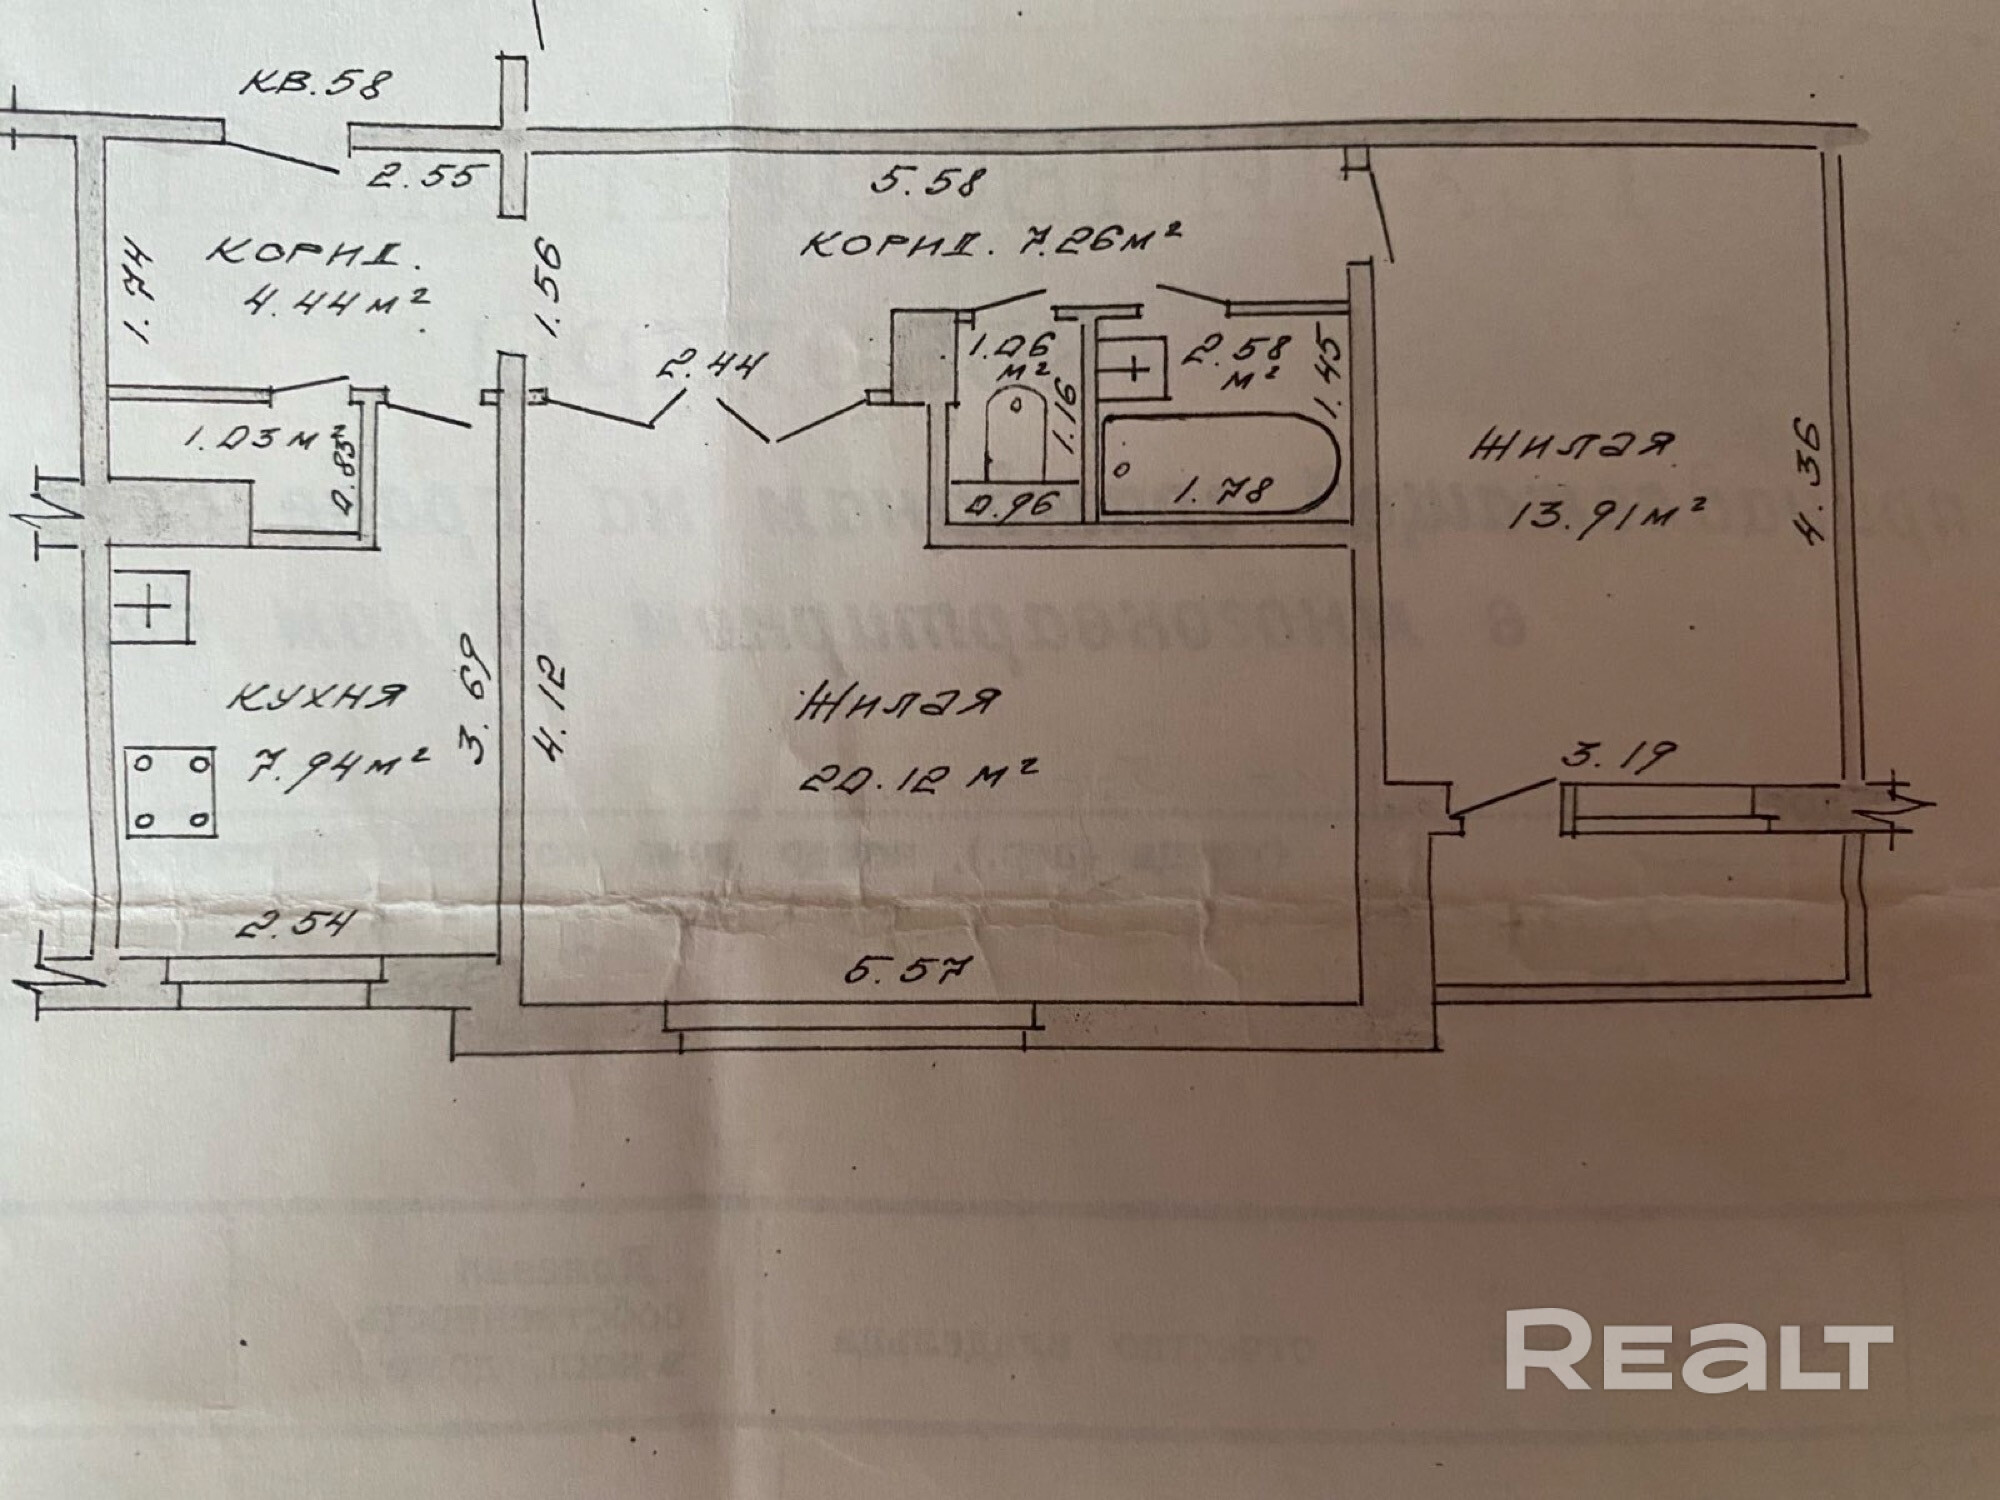 КВ.58
2.55
5.58
1.74
КОРИД.
4.44 м²
1.56
КОРИД. 7.26 м²
2.44
1.06
м²
2.58
м²
1.45
1.16
1.03 м²
0.85
0.96
1.78
ЖИЛАЯ
13.91 м²
4.36
КУХНЯ
7.94 м²
3.69
4.12
ЖИЛАЯ
20.12 м²
3.19
2.54
5.57
REALT